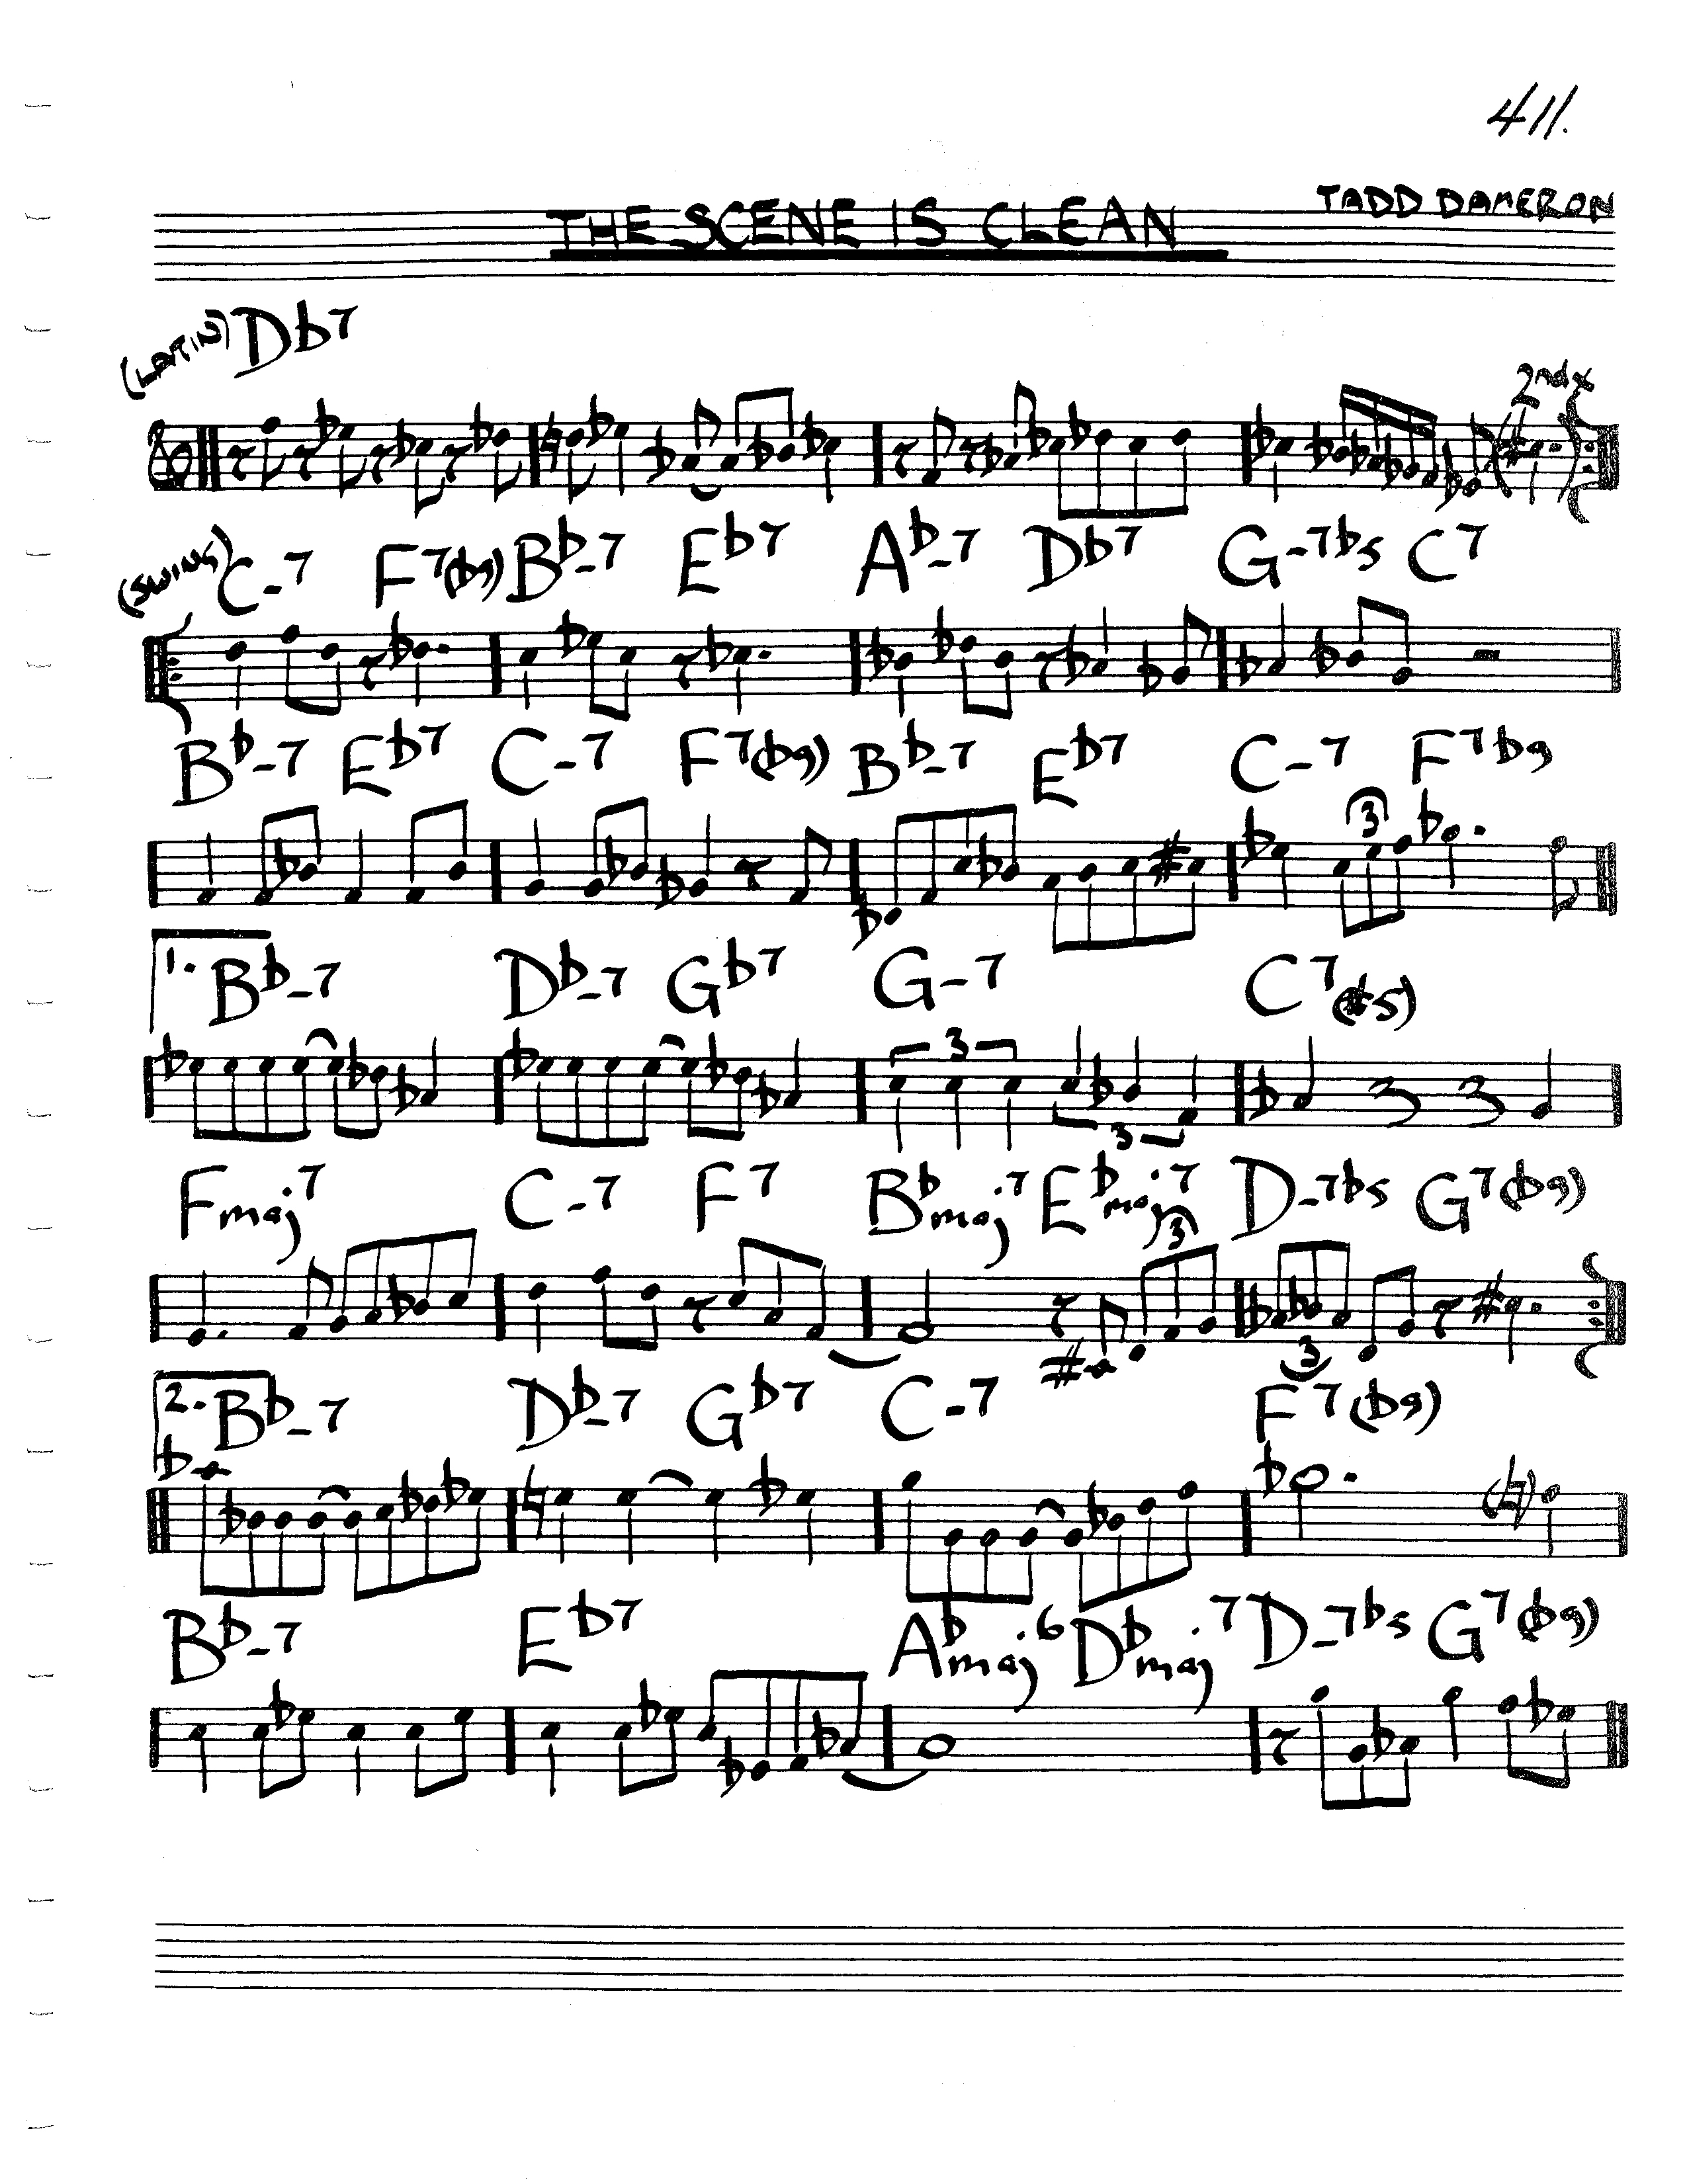 411.
THE SCENE IS CLEAN
TADD DAMERON
(LATIN) Db7
2nd x
(SWING) C-7 F7(b9) Bb-7 Eb7 Ab-7 Db7 G-7b5 C7
Bb-7 Eb7 C-7 F7(b9) Bb-7 Eb7 C-7 F7b9
3
1. Bb-7 Db-7 Gb7 G-7 C7(#5)
3
3
Fmaj7 C-7 F7 Bbmaj7 Ebmaj7 D-7b5 G7(b9)
3
3
2. Bb-7 Db-7 Gb7 C-7 F7(b9)
Bb-7 Eb7 Abmaj6 Dbmaj7 D-7b5 G7(b9)